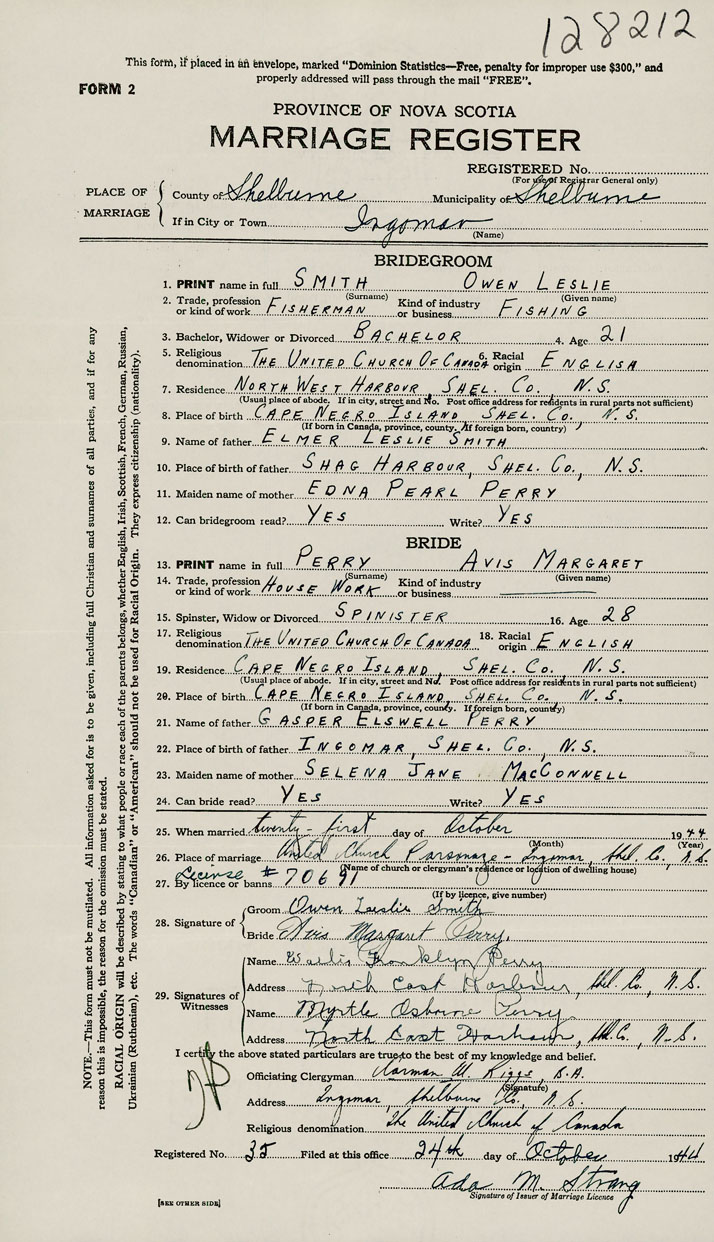 128212
This form, if placed in an envelope, marked "Dominion Statistics—Free, penalty for improper use $300," and
properly addressed will pass through the mail "FREE".
FORM 2
PROVINCE OF NOVA SCOTIA
MARRIAGE REGISTER
REGISTERED No.
(For use of Registrar General only)
PLACE OF MARRIAGE
County of Shelburne Municipality of Shelburne
If in City or Town Ingomar
(Name)
BRIDEGROOM
1. PRINT name in full SMITH OWEN LESLIE
(Surname) (Given name)
2. Trade, profession or kind of work FISHERMAN Kind of industry or business FISHING
3. Bachelor, Widower or Divorced BACHELOR 4. Age 21
5. Religious denomination THE UNITED CHURCH OF CANADA 6. Racial origin ENGLISH
7. Residence NORTH WEST HARBOUR, SHEL. CO. N.S.
(Usual place of abode. If in city, street and No. Post office address for residents in rural parts not sufficient)
8. Place of birth CAPE NEGRO ISLAND SHEL. CO. N.S.
(If born in Canada, province, county. If foreign born, country)
9. Name of father ELMER LESLIE SMITH
10. Place of birth of father SHAG HARBOUR, SHEL. CO., N.S.
11. Maiden name of mother EDNA PEARL PERRY
12. Can bridegroom read? YES Write? YES
BRIDE
13. PRINT name in full PERRY AVIS MARGARET
(Surname) (Given name)
14. Trade, profession or kind of work HOUSE WORK Kind of industry or business
15. Spinster, Widow or Divorced SPINISTER 16. Age 28
17. Religious denomination THE UNITED CHURCH OF CANADA 18. Racial origin ENGLISH
19. Residence CAPE NEGRO ISLAND, SHEL. CO. N.S.
(Usual place of abode. If in city, street and No. Post office address for residents in rural parts not sufficient)
20. Place of birth CAPE NEGRO ISLAND, SHEL. CO, N.S.
(If born in Canada, province, county. If foreign born, country)
21. Name of father GASPER ELSWELL PERRY
22. Place of birth of father INGOMAR, SHEL. CO., N.S.
23. Maiden name of mother SELENA JANE MACCONNELL
24. Can bride read? YES Write? YES
25. When married twenty-first day of October 1944
(Month) (Year)
26. Place of marriage United Church Parsonage - Ingomar, Shel. Co., N.S.
(Name of church or clergyman's residence or location of dwelling house)
27. By licence or banns License # 70691
(If by licence, give number)
28. Signature of
Groom Owen Leslie Smith
Bride Avis Margaret Perry.
29. Signatures of Witnesses
Name Franklyn Perry
Address North East Harbour, Shel. Co., N.S.
Name Myrtle Osborne Perry
Address North East Harbour, Shel. Co., N.S.
I certify the above stated particulars are true to the best of my knowledge and belief.
Officiating Clergyman Norman W. Riggs, B.A.
(Signature)
Address Ingomar, Shelburne Co., N.S.
Religious denomination The United Church of Canada
Registered No. 35 Filed at this office 24th day of October 1944
Ada M. Strang
Signature of Issuer of Marriage Licence
[SEE OTHER SIDE]
NOTE.—This form must not be mutilated. All information asked for is to be given, including full Christian and surnames of all parties, and if for any
reason this is impossible, the reason for the omission must be stated.
RACIAL ORIGIN will be described by stating to what people or race each of the parents belongs, whether English, Irish, Scottish, French, German, Russian,
Ukrainian (Ruthenian), etc. The words "Canadian" or "American" should not be used for Racial Origin. They express citizenship (nationality).